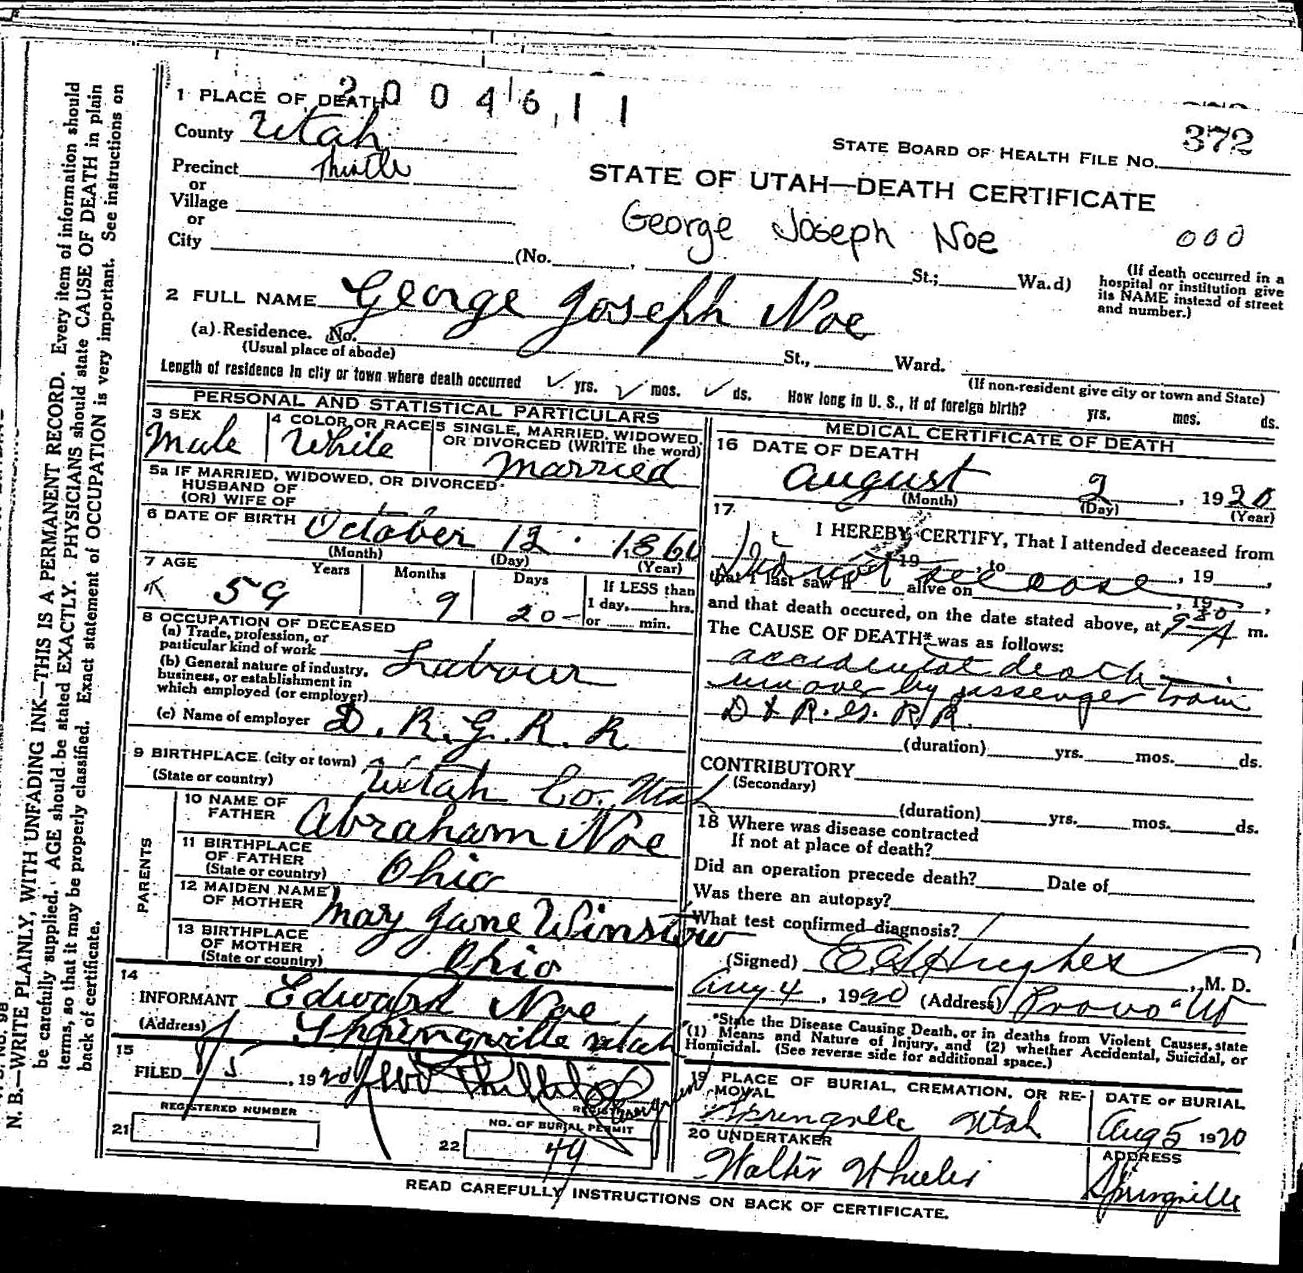 2004611
1 PLACE OF DEATH
County Utah
STATE BOARD OF HEALTH FILE No. 372
Precinct Thistle
STATE OF UTAH—DEATH CERTIFICATE
or
Village
George Joseph Noe
000
or
City (No. , St.; Wa.d)
(If death occurred in a hospital or institution give its NAME instead of street and number.)
2 FULL NAME George Joseph Noe
(a) Residence. No. St., Ward.
(Usual place of abode)
(If non-resident give city or town and State)
Length of residence in city or town where death occurred ✓ yrs. ✓ mos. ✓ ds. How long in U. S., if of foreign birth? yrs. mos. ds.
PERSONAL AND STATISTICAL PARTICULARS
3 SEX Male
4 COLOR OR RACE White
5 SINGLE, MARRIED, WIDOWED, OR DIVORCED (WRITE the word) Married
5a IF MARRIED, WIDOWED, OR DIVORCED
HUSBAND OF
(OR) WIFE OF
6 DATE OF BIRTH October 12. 1860
(Month) (Day) (Year)
7 AGE Years Months Days If LESS than
59 9 20 1 day, hrs.
or min.
8 OCCUPATION OF DECEASED
(a) Trade, profession, or
particular kind of work Labour
(b) General nature of industry,
business, or establishment in
which employed (or employer)
(c) Name of employer D. R. G. R. R
9 BIRTHPLACE (city or town)
(State or country) Utah Co. Utah
PARENTS
10 NAME OF
FATHER Abraham Noe
11 BIRTHPLACE
OF FATHER
(State or country) Ohio
12 MAIDEN NAME
OF MOTHER Mary Jane Winstow
13 BIRTHPLACE
OF MOTHER
(State or country) Ohio
14
INFORMANT Edward Noe
(Address) Springville Utah
15
FILED 8/5, 1920
REGISTRAR
REGISTERED NUMBER
21
NO. OF BURIAL PERMIT
22 44
MEDICAL CERTIFICATE OF DEATH
16 DATE OF DEATH
August 2, 1920
(Month) (Day) (Year)
17
I HEREBY CERTIFY, That I attended deceased from
, 19 , to , 19 ,
Did not see case
that I last saw h alive on , 19 ,
and that death occured, on the date stated above, at 9 30 A m.
The CAUSE OF DEATH* was as follows:
accidental death
run over by passenger train
D & R. G. R.R.
(duration) yrs. mos. ds.
CONTRIBUTORY
(Secondary)
(duration) yrs. mos. ds.
18 Where was disease contracted
If not at place of death?
Did an operation precede death? Date of
Was there an autopsy?
What test confirmed diagnosis?
(Signed) Hughes, M. D.
Aug 4, 1920 (Address) Provo Ut
*State the Disease Causing Death, or in deaths from Violent Causes, state
(1) Means and Nature of Injury, and (2) whether Accidental, Suicidal, or
Homicidal. (See reverse side for additional space.)
19 PLACE OF BURIAL, CREMATION, OR RE-
MOVAL
Springville Utah
DATE OF BURIAL
Aug 5 1920
20 UNDERTAKER
Walter Wheeler
ADDRESS
Springville
READ CAREFULLY INSTRUCTIONS ON BACK OF CERTIFICATE.
N. B.—WRITE PLAINLY, WITH UNFADING INK—THIS IS A PERMANENT RECORD. Every item of information should
be carefully supplied. AGE should be stated EXACTLY. PHYSICIANS should state CAUSE OF DEATH in plain
terms, so that it may be properly classified. Exact statement of OCCUPATION is very important. See instructions on
back of certificate.